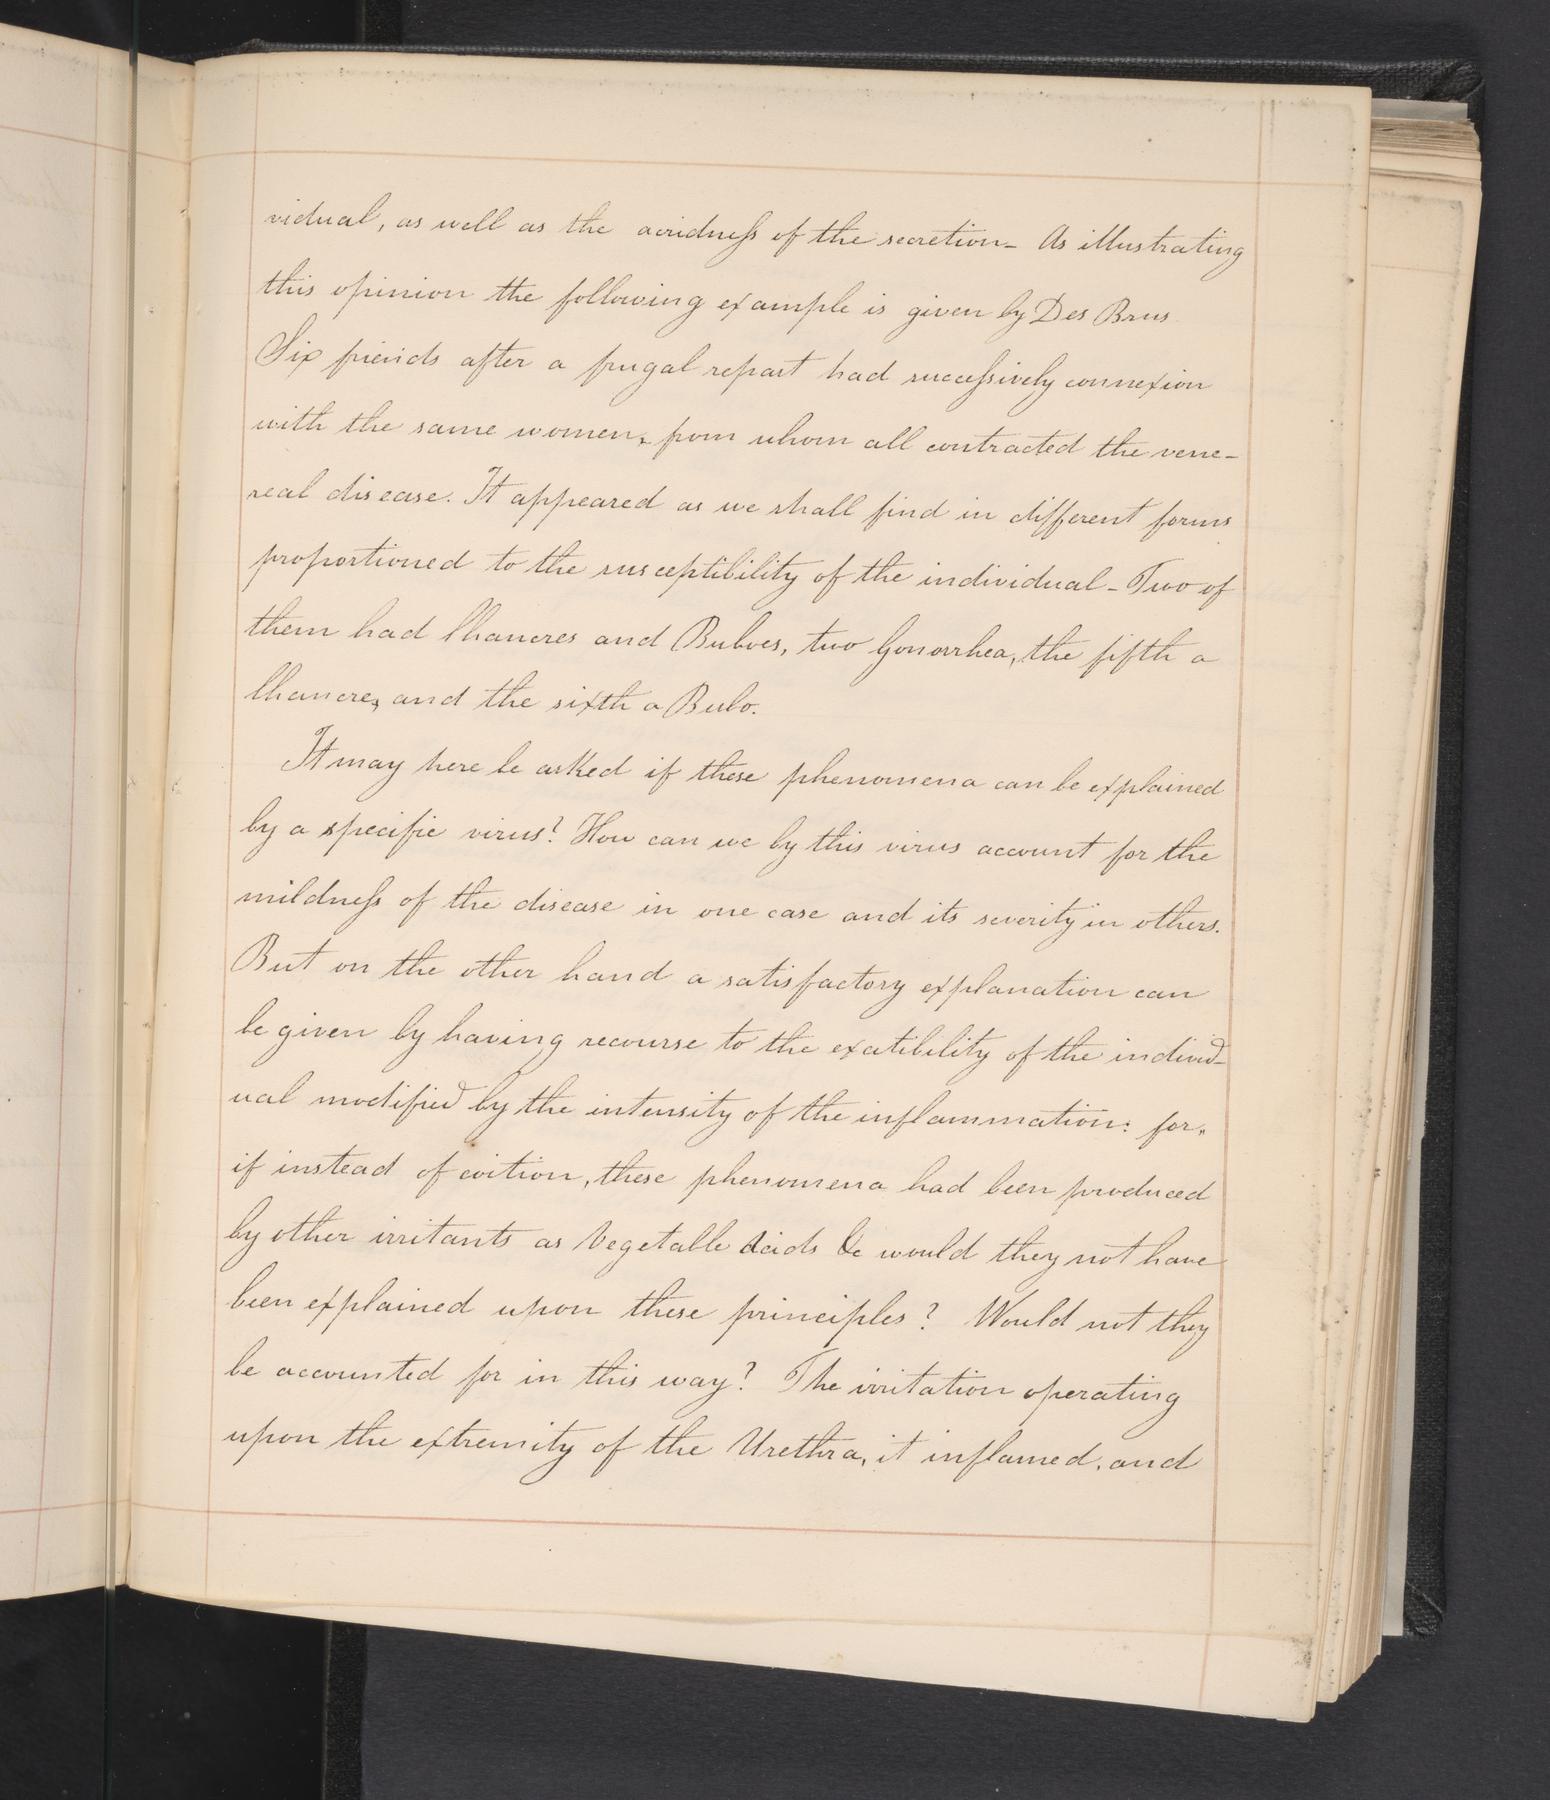 vidual, as well as the acridness of the secretion – As illustrating
this opinion the following example is given by Des Brus
Six friends after a frugal repast had successively connexion
with the same women, from whom all contracted the vene-
real disease. It appeared as we shall find in different forms
proportioned to the susceptibility of the individual – Two of
them had Chancres and Buboes, two Gonorrhea, the fifth a
Chancre, and the sixth a Bubo.
It may here be asked if these phenomena can be explained
by a specific virus? How can we by this virus account for the
mildness of the disease in one case and its severity in others.
But on the other hand a satisfactory explanation can
be given by having recourse to the exatibility of the individ-
ual modified by the intensity of the inflammation: for,
if instead of coition, these phenomena had been produced
by other irritants as Vegetable Acids &c would they not have
been explained upon these principles? Would not they
be accounted for in this way? The irritation operating
upon the extremity of the Urethra, it inflamed, and